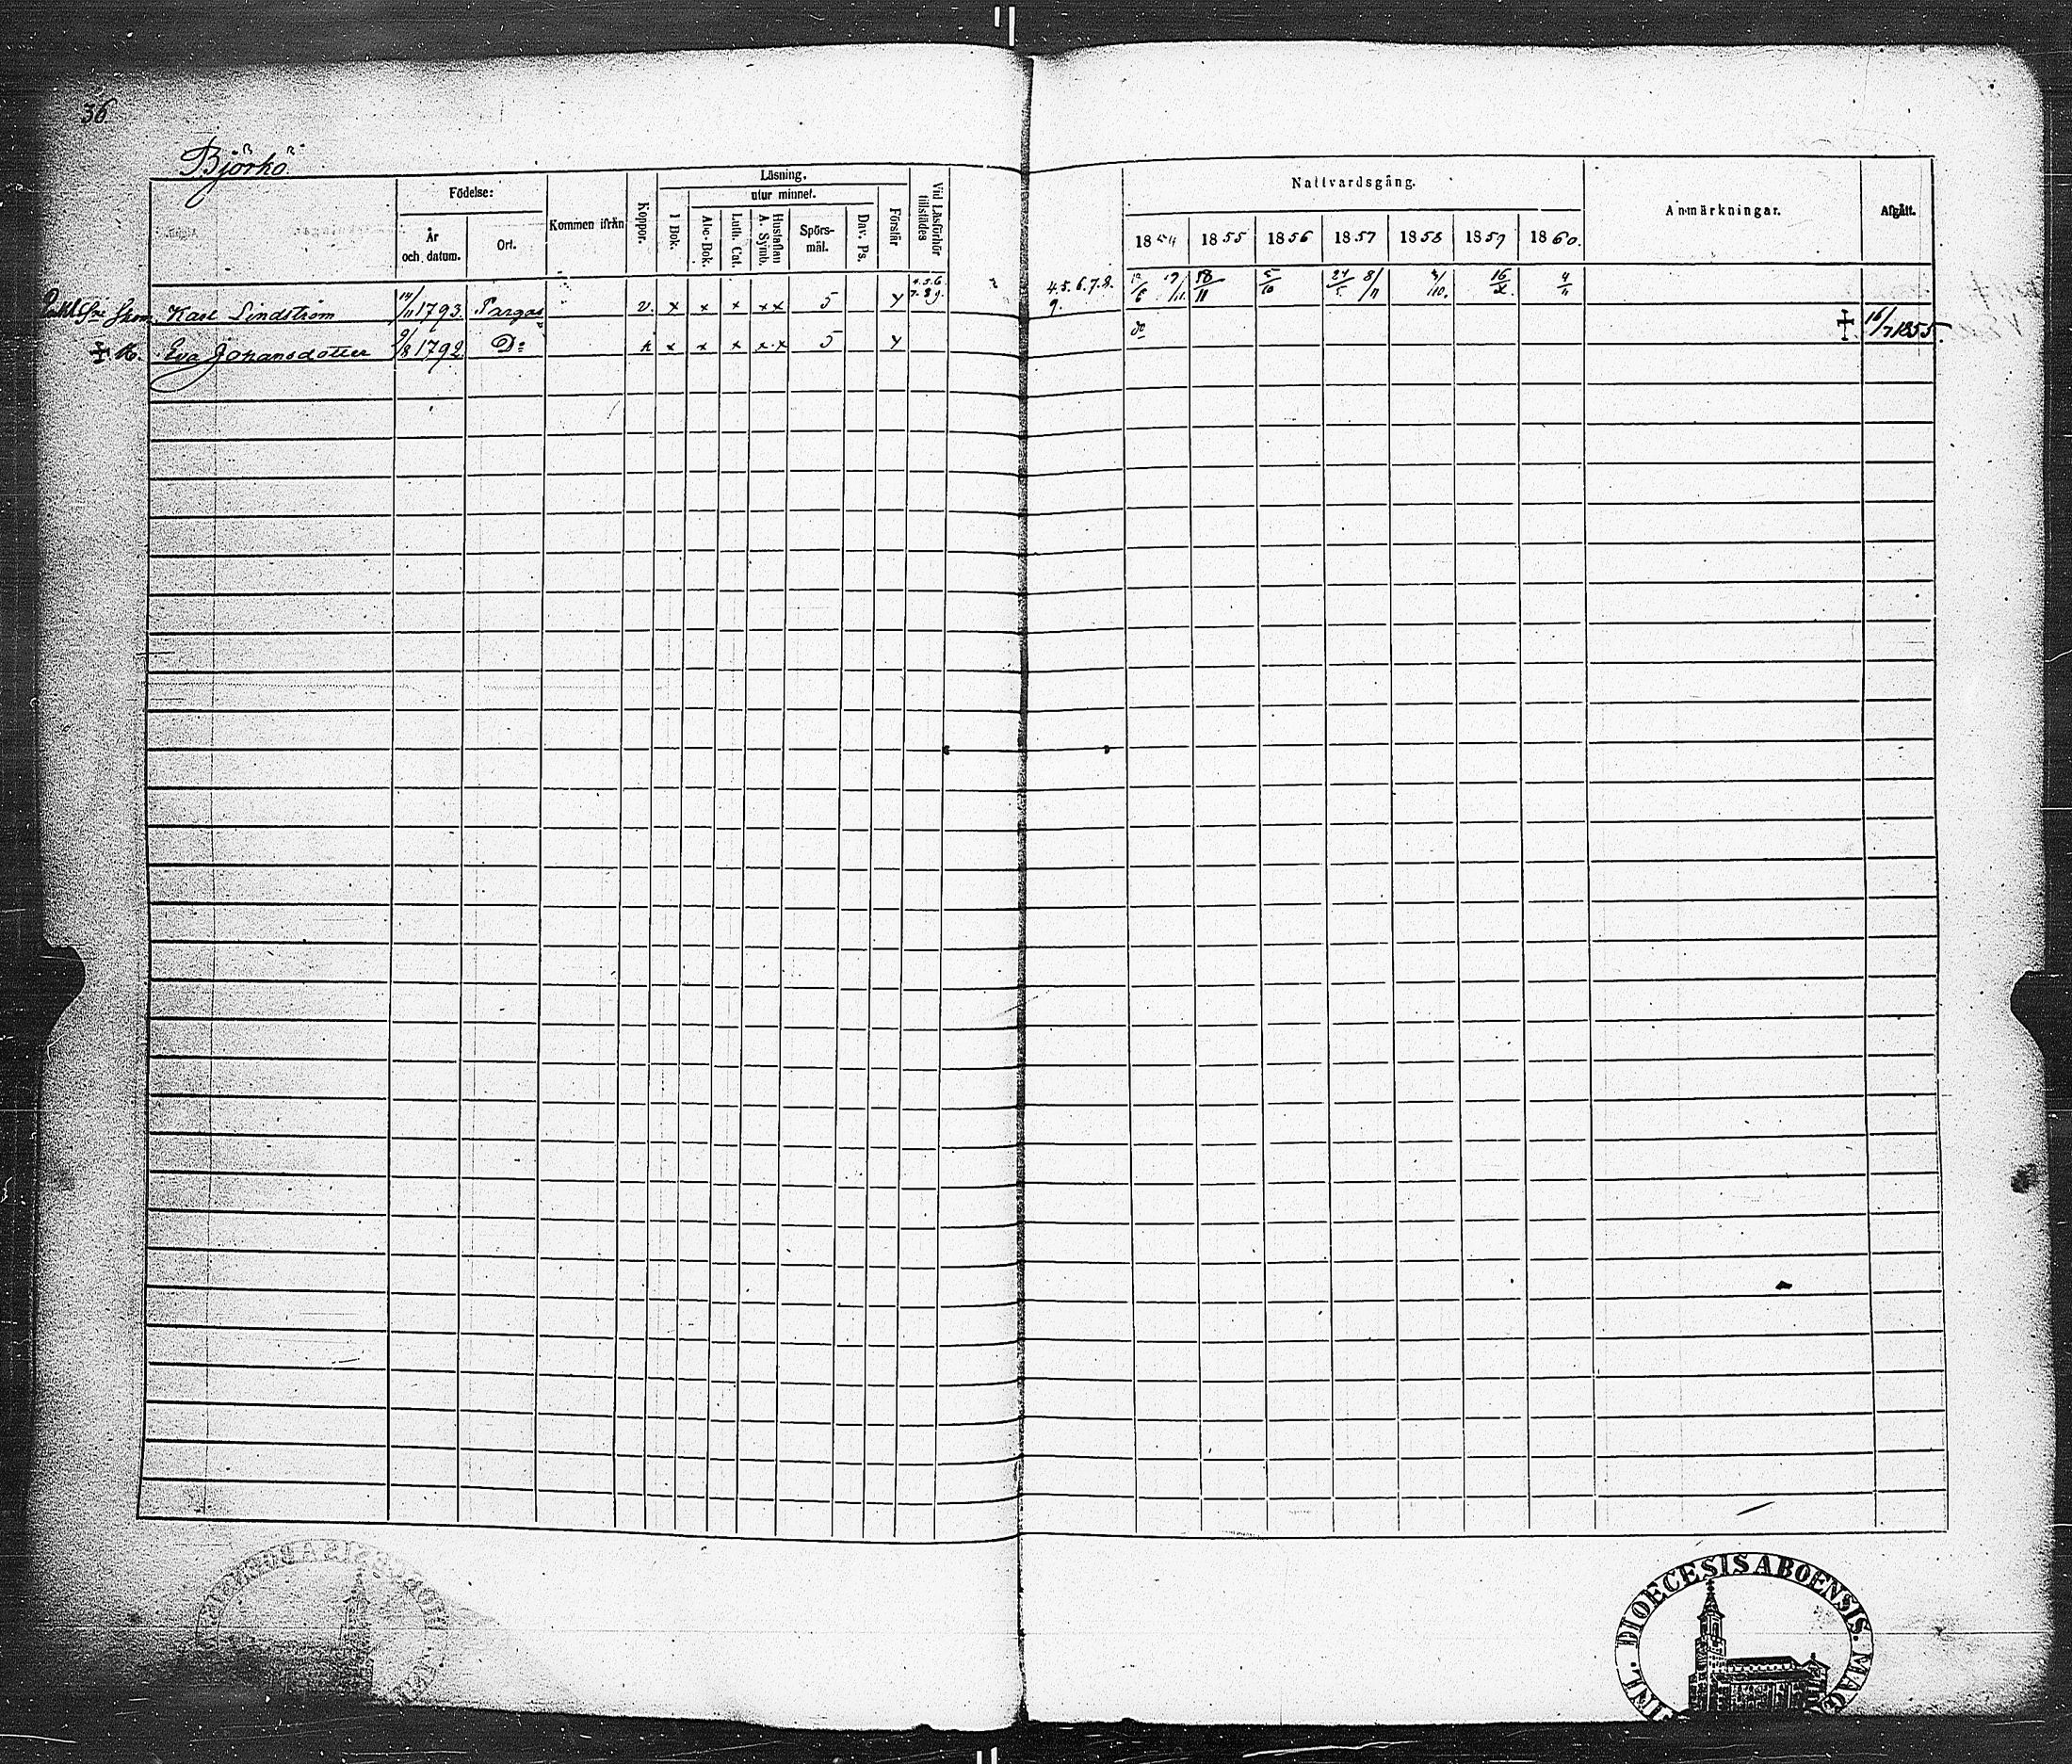 36
Björkö
Födelse:
År och datum.
Ort.
Kommen ifrån
Koppor.
Läsning.
utur minnet.
I Bok.
Abc-Bok.
Luth. Cat.
Hustaflan A. Symb.
Spörs-mål.
Dav. Ps.
Förstår
Vid Läsförhör tillstädes
Nattvardsgång.
1854 1855 1856 1857 1858 1859 1860.
Anmärkningar.
Afgått.
Karl Lindström 14/11 1793. Pargas v. x x x x x 5 y 4.5.6 7.8.9. 4.5.6.7.8. 9. 19/11 18/11 5/10 24/5 8/11 4/11
H. Eva Johansdotter 9/8 1792 Do x x x x x 5 y do 16/7 1855.
FINL. DIOECESIS ABOENSIS. MAG